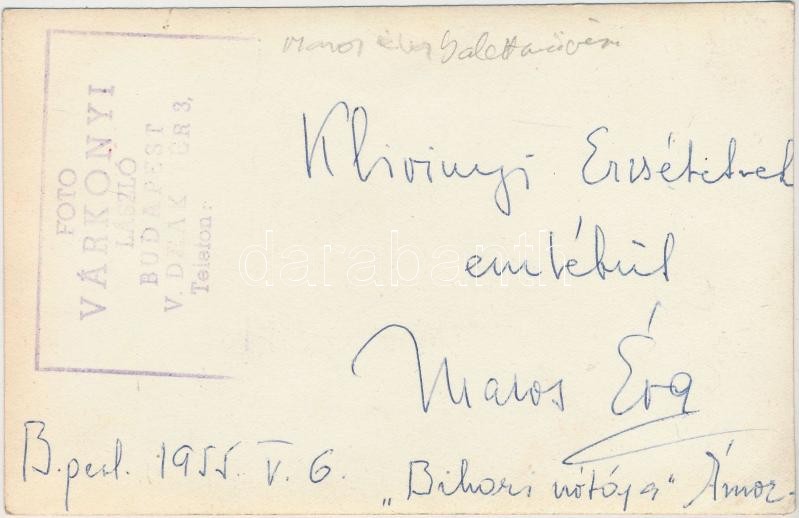 Maros Éva balettművész
FOTO
VÁRKONYI
LÁSZLÓ
BUDAPEST
V. DEÁK GR 3,
Telefon:
Erzsébetnek
emlékül
Maros Éva
B.pest. 1955. V. 6.
„Bihari nótája" Ámor-
darabanth